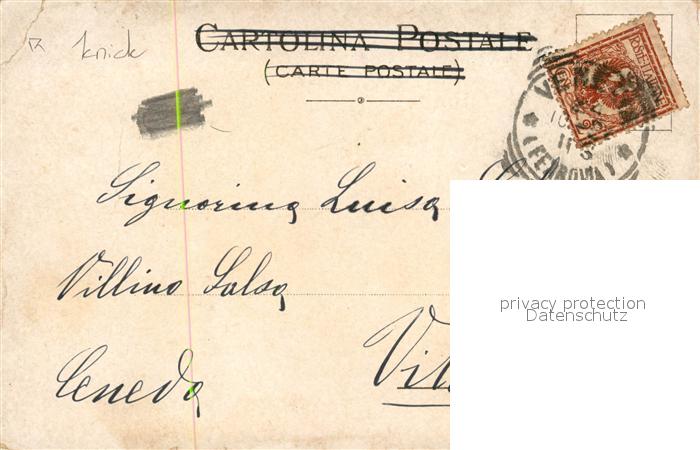 knick
CARTOLINA POSTALE
(CARTE POSTALE)
POSTE ITALIANE
(FERROVIA)
Signorina Luisa
Villino Salsa
Ceneda
privacy protection
Datenschutz